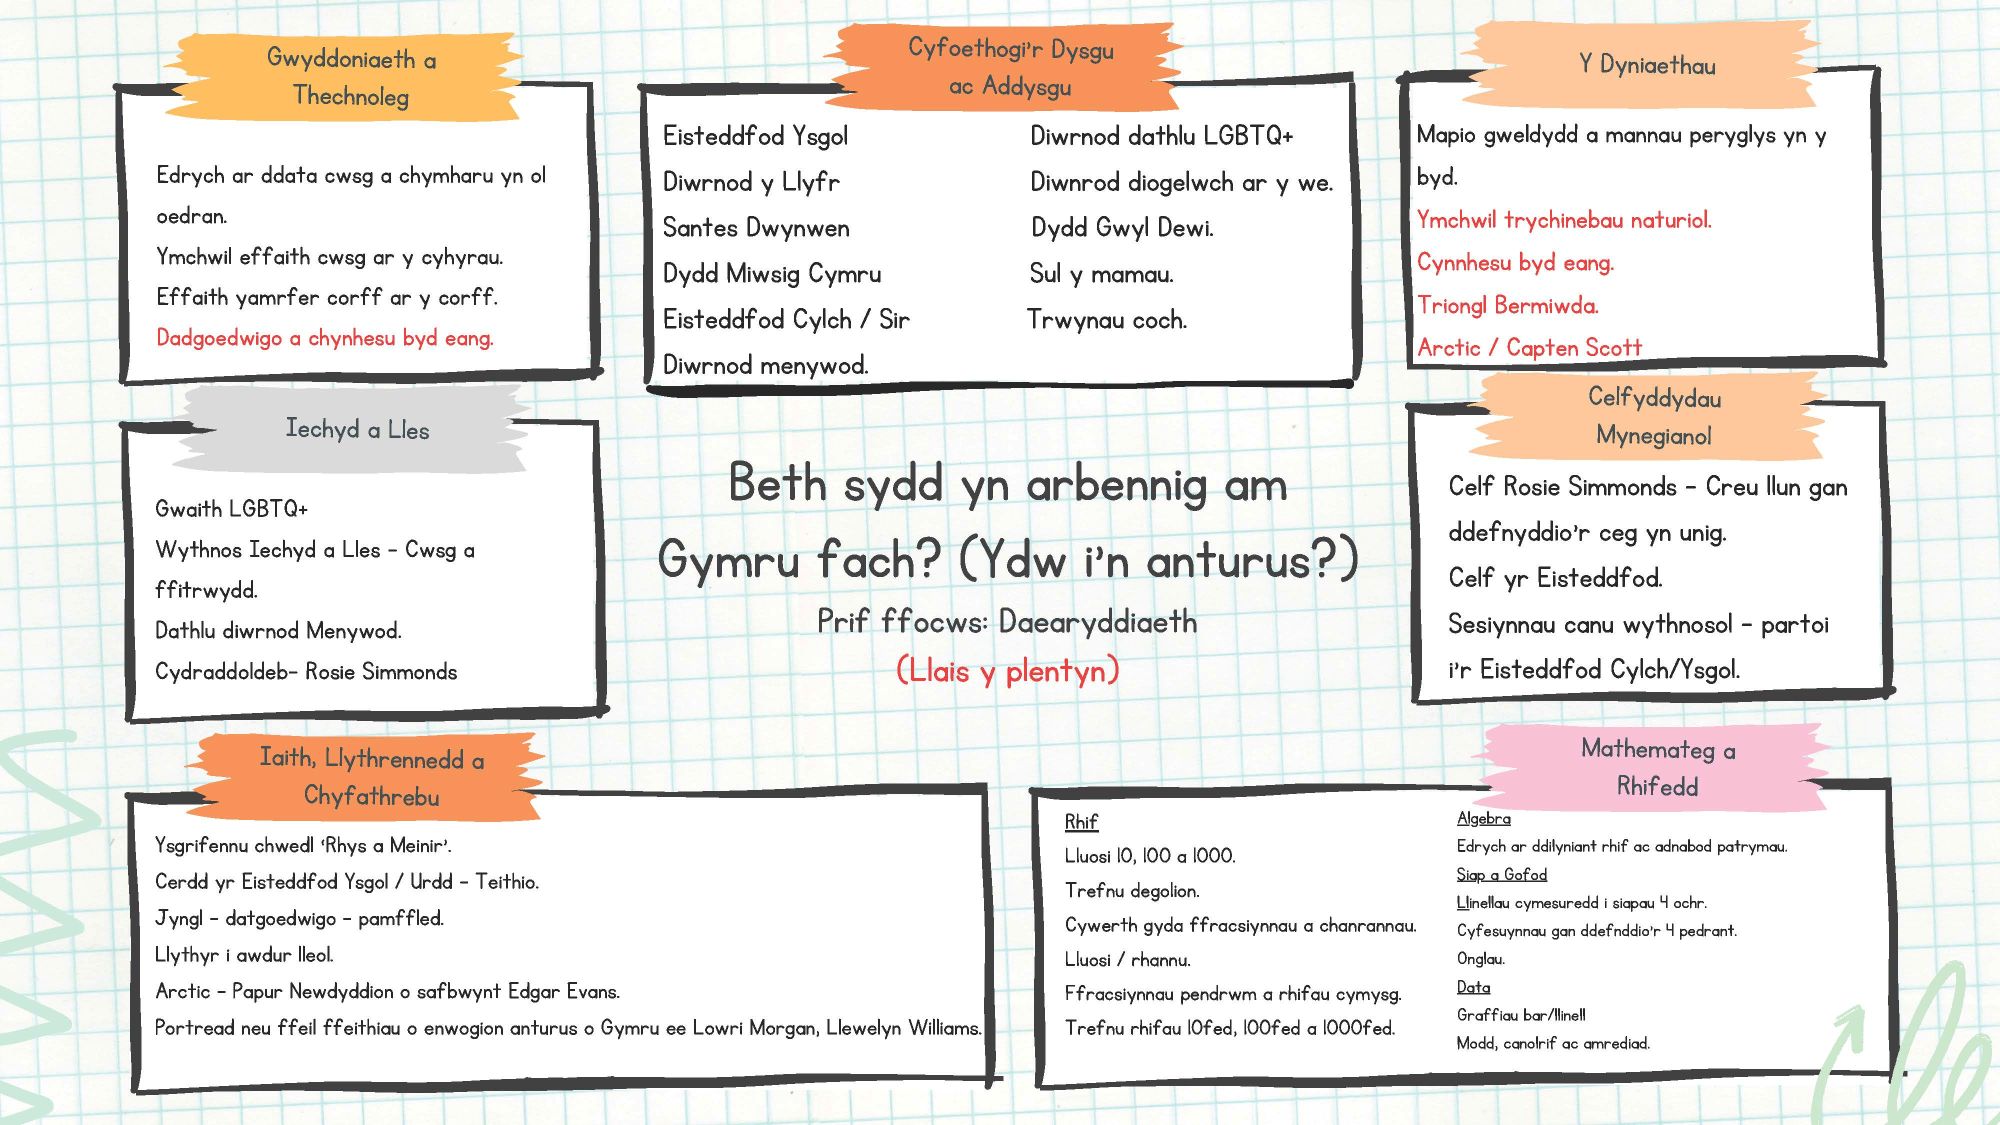 Gwyddoniaeth a
Thechnoleg
Edrych ar ddata cwsg a chymharu yn ol
oedran.
Ymchwil effaith cwsg ar y cyhyrau.
Effaith yamrfer corff ar y corff.
Dadgoedwigo a chynhesu byd eang.
Cyfoethogi'r Dysgu
ac Addysgu
Eisteddfod Ysgol
Diwrnod y Llyfr
Santes Dwynwen
Dydd Miwsig Cymru
Eisteddfod Cylch / Sir
Diwrnod menywod.
Diwrnod dathlu LGBTQ+
Diwnrod diogelwch ar y we.
Dydd Gwyl Dewi.
Sul y mamau.
Trwynau coch.
Y Dyniaethau
Mapio gweldydd a mannau peryglys yn y
byd.
Ymchwil trychinebau naturiol.
Cynnhesu byd eang.
Triongl Bermiwda.
Arctic / Capten Scott
Iechyd a Lles
Gwaith LGBTQ+
Wythnos Iechyd a Lles - Cwsg a
ffitrwydd.
Dathlu diwrnod Menywod.
Cydraddoldeb- Rosie Simmonds
Beth sydd yn arbennig am
Gymru fach? (Ydw i'n anturus?)
Prif ffocws: Daearyddiaeth
(Llais y plentyn)
Celfyddydau
Mynegianol
Celf Rosie Simmonds - Creu llun gan
ddefnyddio'r ceg yn unig.
Celf yr Eisteddfod.
Sesiynnau canu wythnosol - partoi
i'r Eisteddfod Cylch/Ysgol.
Iaith, Llythrennedd a
Chyfathrebu
Ysgrifennu chwedl 'Rhys a Meinir'.
Cerdd yr Eisteddfod Ysgol / Urdd - Teithio.
Jyngl - datgoedwigo - pamffled.
Llythyr i awdur lleol.
Arctic - Papur Newdyddion o safbwynt Edgar Evans.
Portread neu ffeil ffeithiau o enwogion anturus o Gymru ee Lowri Morgan, Llewelyn Williams.
Mathemateg a
Rhifedd
Rhif
Lluosi 10, 100 a 1000.
Trefnu degolion.
Cywerth gyda ffracsiynnau a chanrannau.
Lluosi / rhannu.
Ffracsiynnau pendrwm a rhifau cymysg.
Trefnu rhifau 10fed, 100fed a 1000fed.
Algebra
Edrych ar ddilyniant rhif ac adnabod patrymau.
Siap a Gofod
Llinellau cymesuredd i siapau 4 ochr.
Cyfesuynnau gan ddefnddio'r 4 pedrant.
Onglau.
Data
Graffiau bar/llinell
Modd, canolrif ac amrediad.